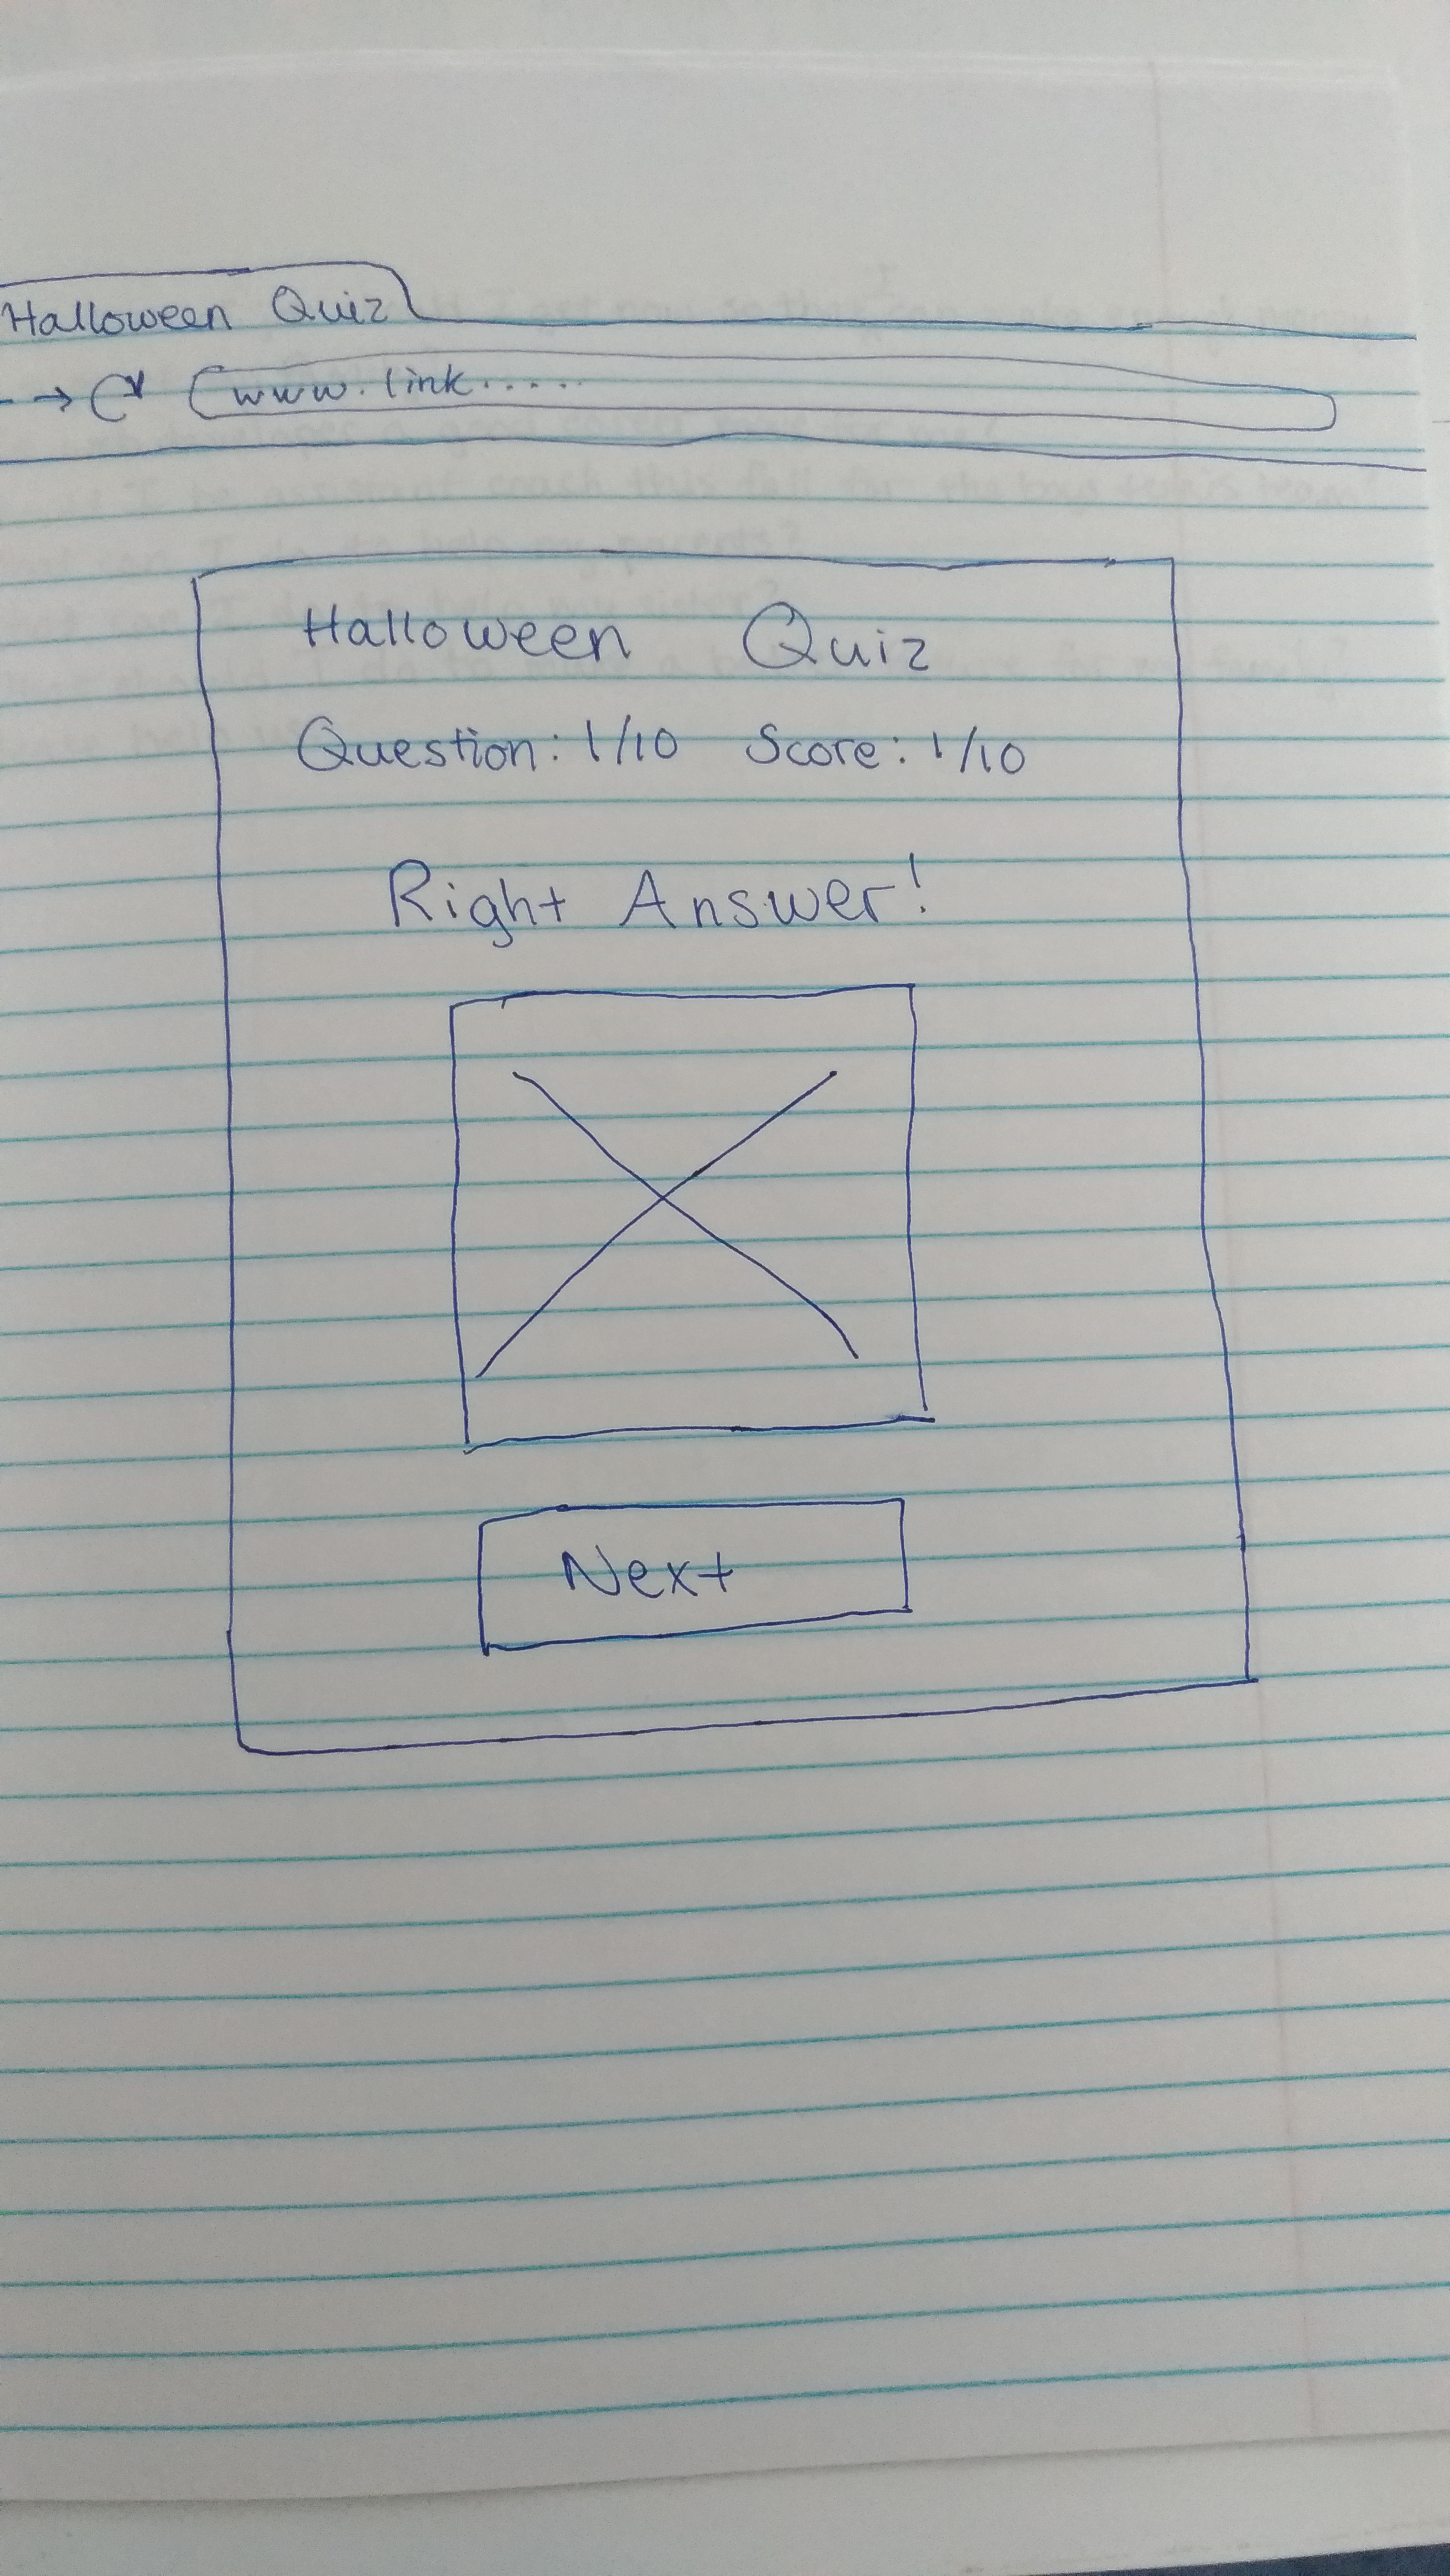 Halloween Quiz
www.link.....
Halloween Quiz
Question: 1/10 Score: 1/10
Right Answer!
Next